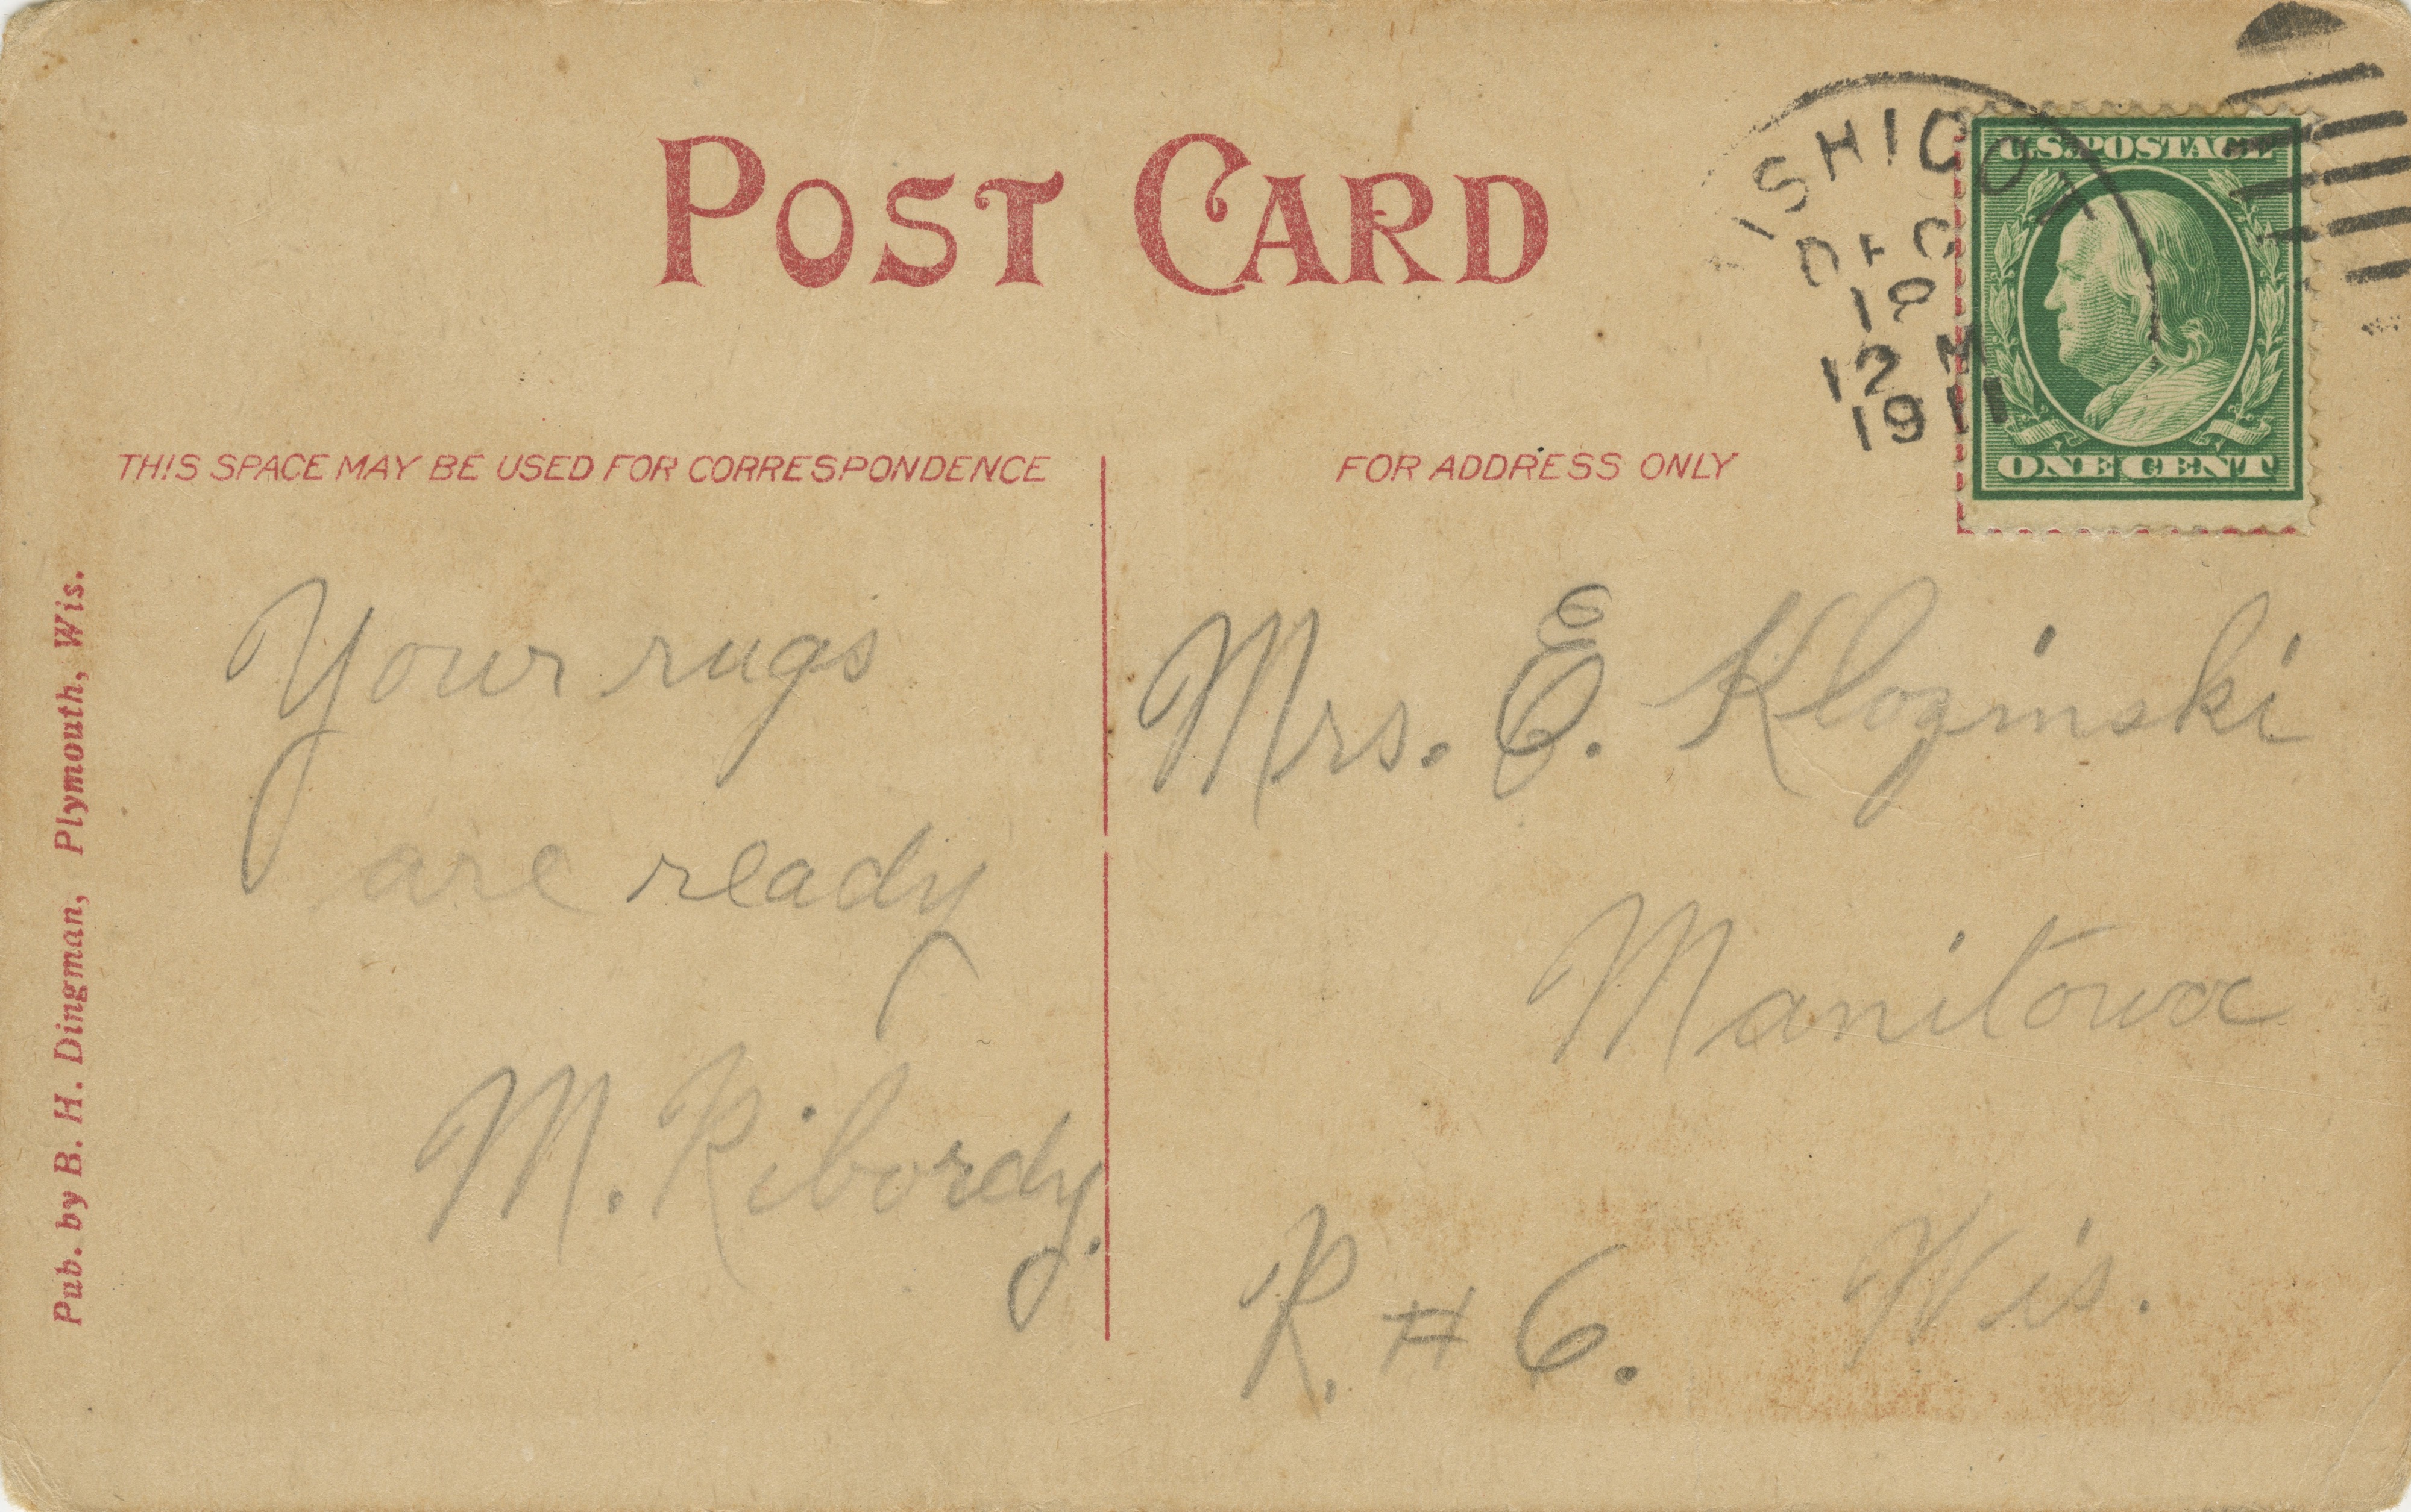 POST CARD
ISHICOT
DEC
12 M
1911
U.S. POSTAGE
ONE CENT
THIS SPACE MAY BE USED FOR CORRESPONDENCE
FOR ADDRESS ONLY
Your rugs
are ready
M. Ribordy.
Mrs. E. Klozinski
Manitowoc
R. # 6. Wis.
Pub. by B. H. Dingman, Plymouth, Wis.